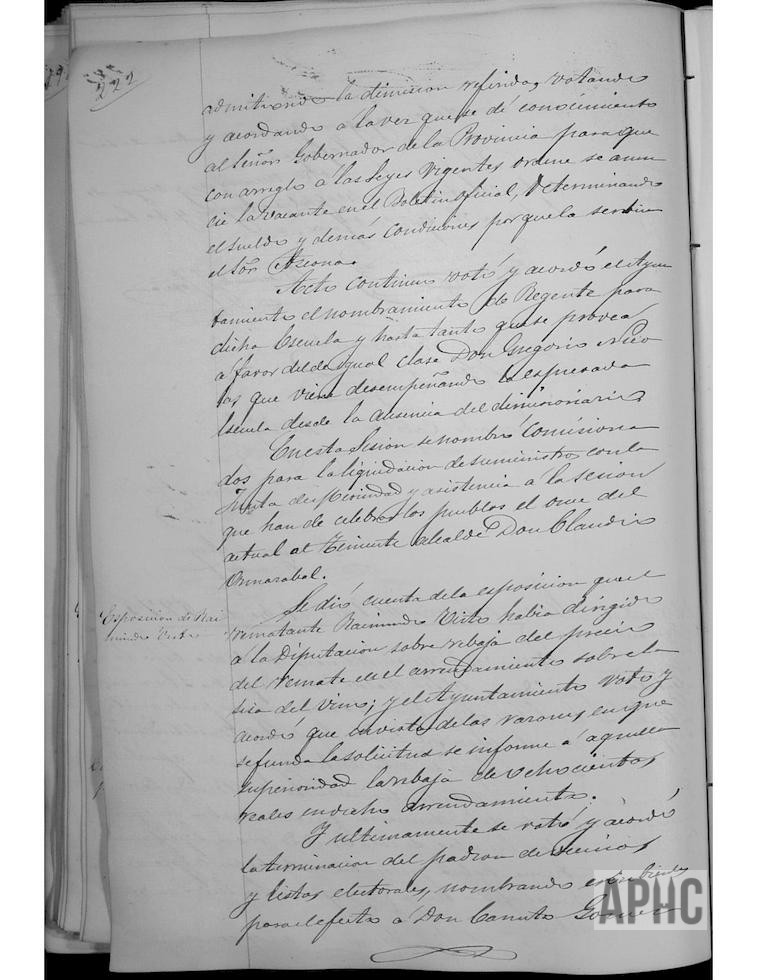 222
admitiendo la dimision referida, votando
y acordando á la vez que se dé conocimiento
al Señor Gobernador de la Provincia para que
con arreglo á las Leyes vigentes ordene se anun
cie la vacante en el Boletin oficial, determinando
el sueldo y demás condiciones porque la servia
el Sor
Acto continuo votó y acordó el Ayun
tamiento el nombramiento de Regente para
dicha Escuela y hasta tanto que se provea
a favor del de igual clase Don Gregorio Nico
las que viene desempeñando la espresada
Escuela desde la ausencia del dimisionario.
En esta Sesion se nombró Comisiona
dos para la liquidacion de suministros con la
Junta de Merindad y asistencia a la sesion
que han de celebrar los pueblos el once del
actual al Teniente Alcalde Don Claudio
Ormazabal.
Esposicion de Rai
mundo Visto
Se dió cuenta de la esposicion que el
rematante Raimundo Visto habia dirigido
a la Diputacion sobre rebaja del precio
del remate en el arrendamiento sobre la
sisa del vino; y el Ayuntamiento votó y
acordó que en vista de las razones en que
se funda la solicitud se informe á aquella
superioridad la rebaja de ochocientos
reales en dicho arrendamiento.
Y ultimamente se votó y acordó
la terminacion del padron de vecinos
y listas electorales, nombrando escribientes
para el efecto á Don Canuto Gomez
APHC